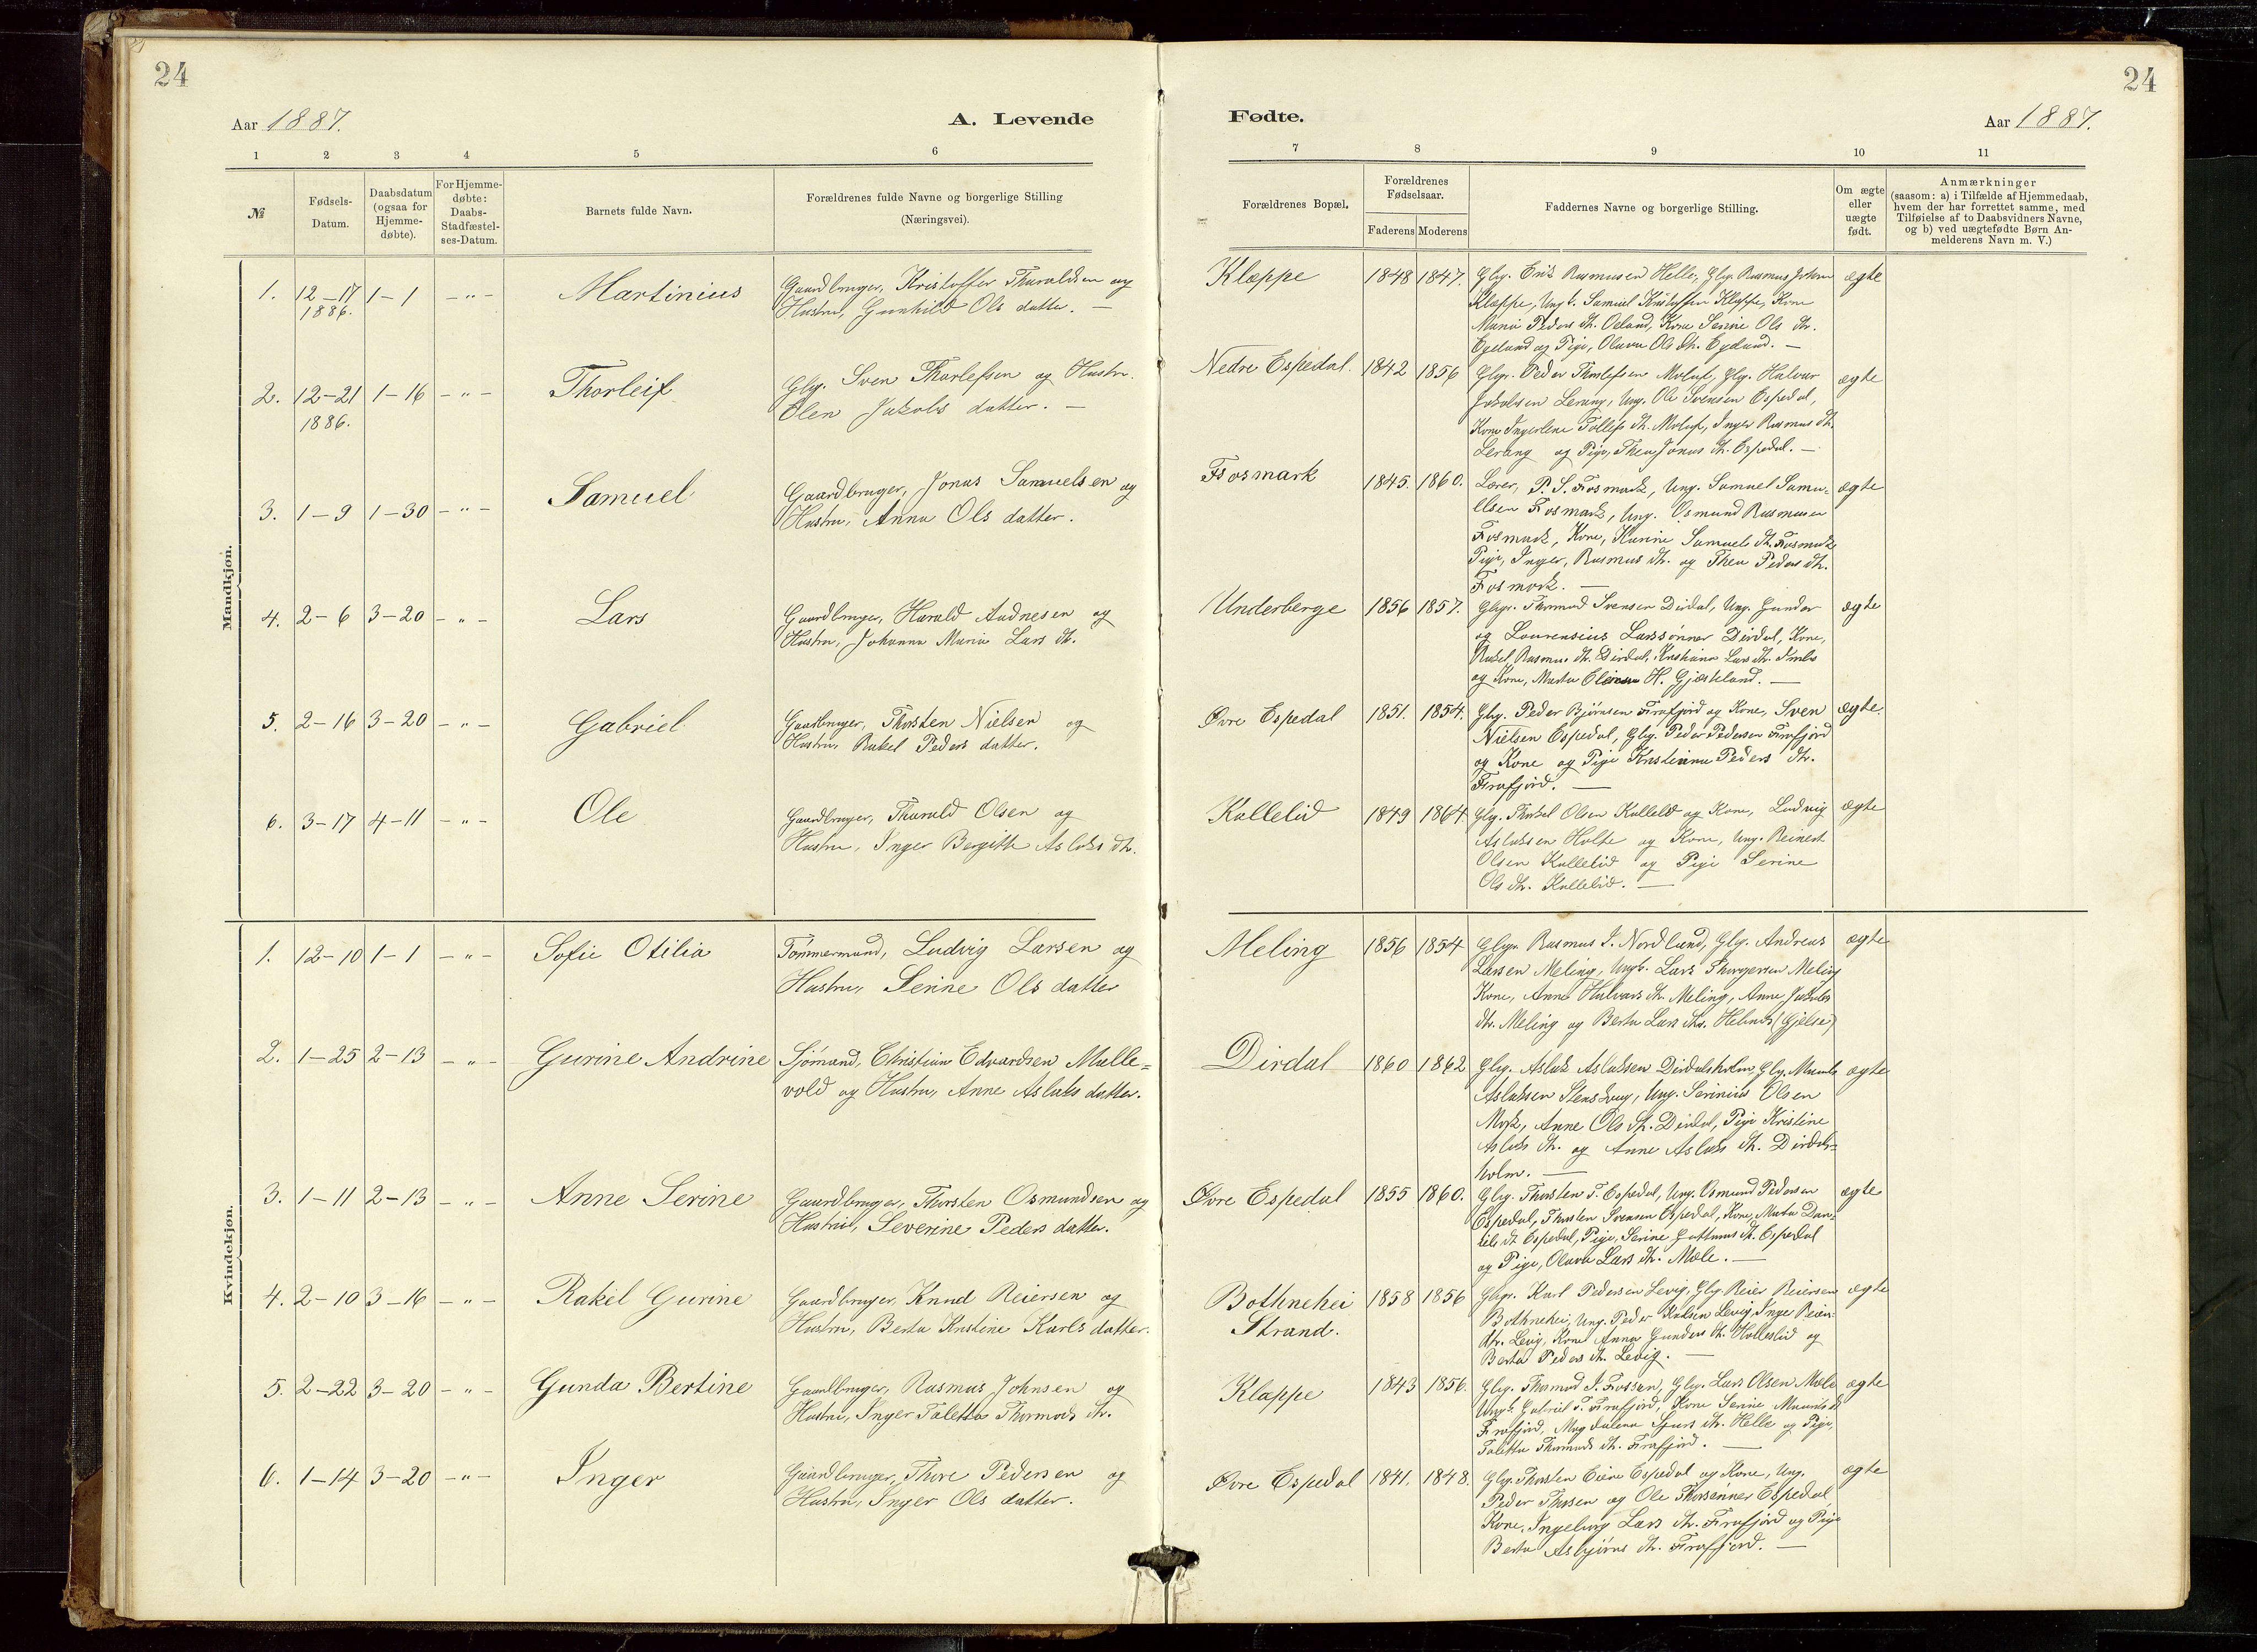 24
Aar 1887.
A. Levende
1 2 3 4 5 6
№
Fødsels-
Datum.
Daabsdatum
(ogsaa for
Hjemme-
døbte).
For Hjemme-
døbte:
Daabs-
Stadfæstel-
ses-Datum.
Barnets fulde Navn.
Forældrenes fulde Navne og borgerlige Stilling
(Næringsvei).
Mandkjøn.
1. 12-17 1-1 -"- Martinius Gaardbruger, Kristoffer Tharaldsen og
1886. Hustru, Gunhild Ols datter. —
2. 12-21 1-16 -"- Thorleif Gbgr. Sven Thorlefsen og Hustru
1886. Elen Jakobs datter. —
3. 1-9 1-30 -"- Samuel Gaardbruger, Jonas Samuelsen og
Hustru, Anna Ols datter.
4. 2-6 3-20 -"- Lars Gaardbruger, Harald Audnesen og
Hustru, Johanna Maria Lars dtr.
5. 2-16 3-20 -"- Gabriel Gaardbruger, Thorsten Nielsen og
Hustru, Rakel Peders datter.
6. 3-17 4-11 -"- Ole Gaardbruger, Tharald Olsen og
Hustru, Inger Bergitte Aslaks dtr.
Kvindekjøn.
1. 12-10 1-1 -"- Sofie Otilia Tømmermand, Ludvig Larsen og
Hustru, Serine Ols datter
2. 1-25 2-13 -"- Gurine Andrine Sjømand, Christian Edvardsen Malle=
vold og Hustru, Anne Aslaks datter.
3. 1-11 2-13 -"- Anne Serine Gaardbruger, Thorsten Osmundsen og
Hustru, Severine Peders datter.
4. 2-10 3-16 -"- Rakel Gurine Gaardbruger, Knud Reiersen og
Hustru, Berta Kristine Karls datter.
5. 2-22 3-20 -"- Gunda Bertine Gaardbruger, Rasmus Johnsen og
Hustru, Inger Taletta Thormods dtr.
6. 1-14 3-20 -"- Inger Gaardbruger, Thore Pedersen og
Hustru, Inger Ols datter.
24
Fødte.
Aar 1887.
7 8 9 10 11
Forældrenes Bopæl.
Forældrenes
Fødselsaar.
Faderens Moderens
Faddernes Navne og borgerlige Stilling.
Om ægte
eller
uægte
født.
Anmærkninger
(saasom: a) i Tilfælde af Hjemmedaab,
hvem der har forrettet samme, med
Tilføielse af to Daabsvidners Navne,
og b) ved uægtefødte Børn An-
melderens Navn m. V.)
Klæppe 1848 1847. Gbgr. Erik Rasmusen Helle, Gbgr. Rasmus Johnsen ægte
Klæppe, Ungk. Samuel Kristoffersen Klæppe, Kone
Maria Peders dtr. Kone Serine Ols dtr.
Egeland og Pige, Olava Ols dtr. Egeland. —
Nedre Espedal. 1842 1856 Gbgr. Peder Thorlefsen Molaf, Gbgr. Halvar ægte
Jakobsen Lerang, Ung. Ole Svensen Espedal,
Kone Ingerlene Tollefs dtr. Molaf, Inger Rasmus dtr.
Lerang og Pige, Thea Jonas dtr. Espedal. —
Fosmark 1845. 1860. Lærer, P. S. Fosmark, Ung. Samuel Samu= ægte
elsen Fosmark, Ung. Osmund Rasmusen
Fosmark, Kone, Karine Samuels dtr. Fosmark
Pige, Inger, Rasmus dtr. og Thea Peders dtr.
Fosmark. —
Underberge 1856 1857. Gbgr. Thormod Svensen Dirdal, Ung. Gunder ægte
og Lourensius Larssønner Dirdal, Kone,
Rakel Rasmus dtr. Dirdal, Kristiane Lars dtr.
og Kone, Marta H. Gjesteland. —
Øvre Espedal 1851. 1854. Gbgr. Peder Bjørnsen Frafjord og Kone, Sven ægte.
Nielsen Espedal, Gbg. Peder Pedersen Frafjord
og Kone og Pige Kristianna Peders dtr.
Frafjord. —
Kallelid 1849 1864 Gbg. Thorkel Olsen Kallelid og Kone, Ludvig ægte
Aslaksen Holte og Kone, Ung. Reinert
Olsen Kallelid og Pige Serine
Ols dtr. Kallelid. —
Meling 1856 1854 Gbgr. Rasmus J. Nordland, Gbg. Andreas ægte
Larsen Meling, Ungk. Lars Thorgersen Meling
Kone, Anne Halvars dtr. Meling, Anne Jakobs
dtr. Meling og Berta Lars dtr. (Gjelse)
Dirdal 1860 1862 Gbg. Aslak Aslaksen Dirdalsholm, Gbg. ægte
Aslaksen Ung. Serinius Olsen
Anne Ols dtr. Dirdal, Pige Kristine
Aslaks dtr. og Anne Aslaks dtr. Dirdals=
holm. —
Øvre Espedal 1855 1860. Gbg. Thorsten T. Espedal, Ung. Osmund Pedersen ægte
Espedal, Thorsten Svensen Espedal, Kone, Marta Dan=
iels dtr. Espedal, Pige, Serine dtr. Espedal
og Pige, Olava Lars dtr. Mæle. —
Bothnehei 1858 1856 Gbgr. Karl Pedersen Levig, Gbg. Reier Reiersen ægte
Strand. Bothnehei, Ung. Peder Karlsen Levig, Inger Reier=
dtr. Levig, Kone Anna Gunders dtr. Holleslid og
Berta Peders dtr. Levig. —
Klæppe 1843 1856. Gbg. Thormod J. Fossan, Gbg. Lars Olsen Mæle ægte
Ungk. Gabriel T. Frafjord, Kone Serine
Frafjord, Magdalena dtr. Helle og Pige,
Taletta Thormods dtr. Frafjord. —
Øvre Espedal 1841. 1848. Gbg. Thorsten Espedal og Kone, Ung. ægte
Peder Thorsen og Ole Thorsønner Espedal
Kone, Ingeborg Lars dtr. Frafjord og Pige
Berta Asbjørns dtr. Frafjord. —